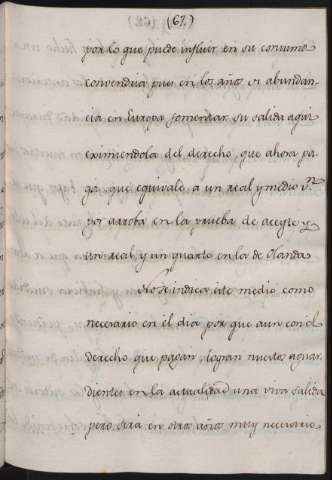 (67.)
por lo que puede influir en su consumo
convendria pues en los años de abundan-
cia en Europa fomentar su salida aqui
eximiendola del derecho, que ahora pa-
ga, que equivale a un real y medio v.n
por arroba en la prueba de aceyte, y
un real, y un quarto en la de Olanda.
No se indica este medio como
necesario en el dia por que aun con el
derecho que pagan, logran nuestros aguar-
dientes en la actualidad una viva salida
pero será en otros años muy necesario.